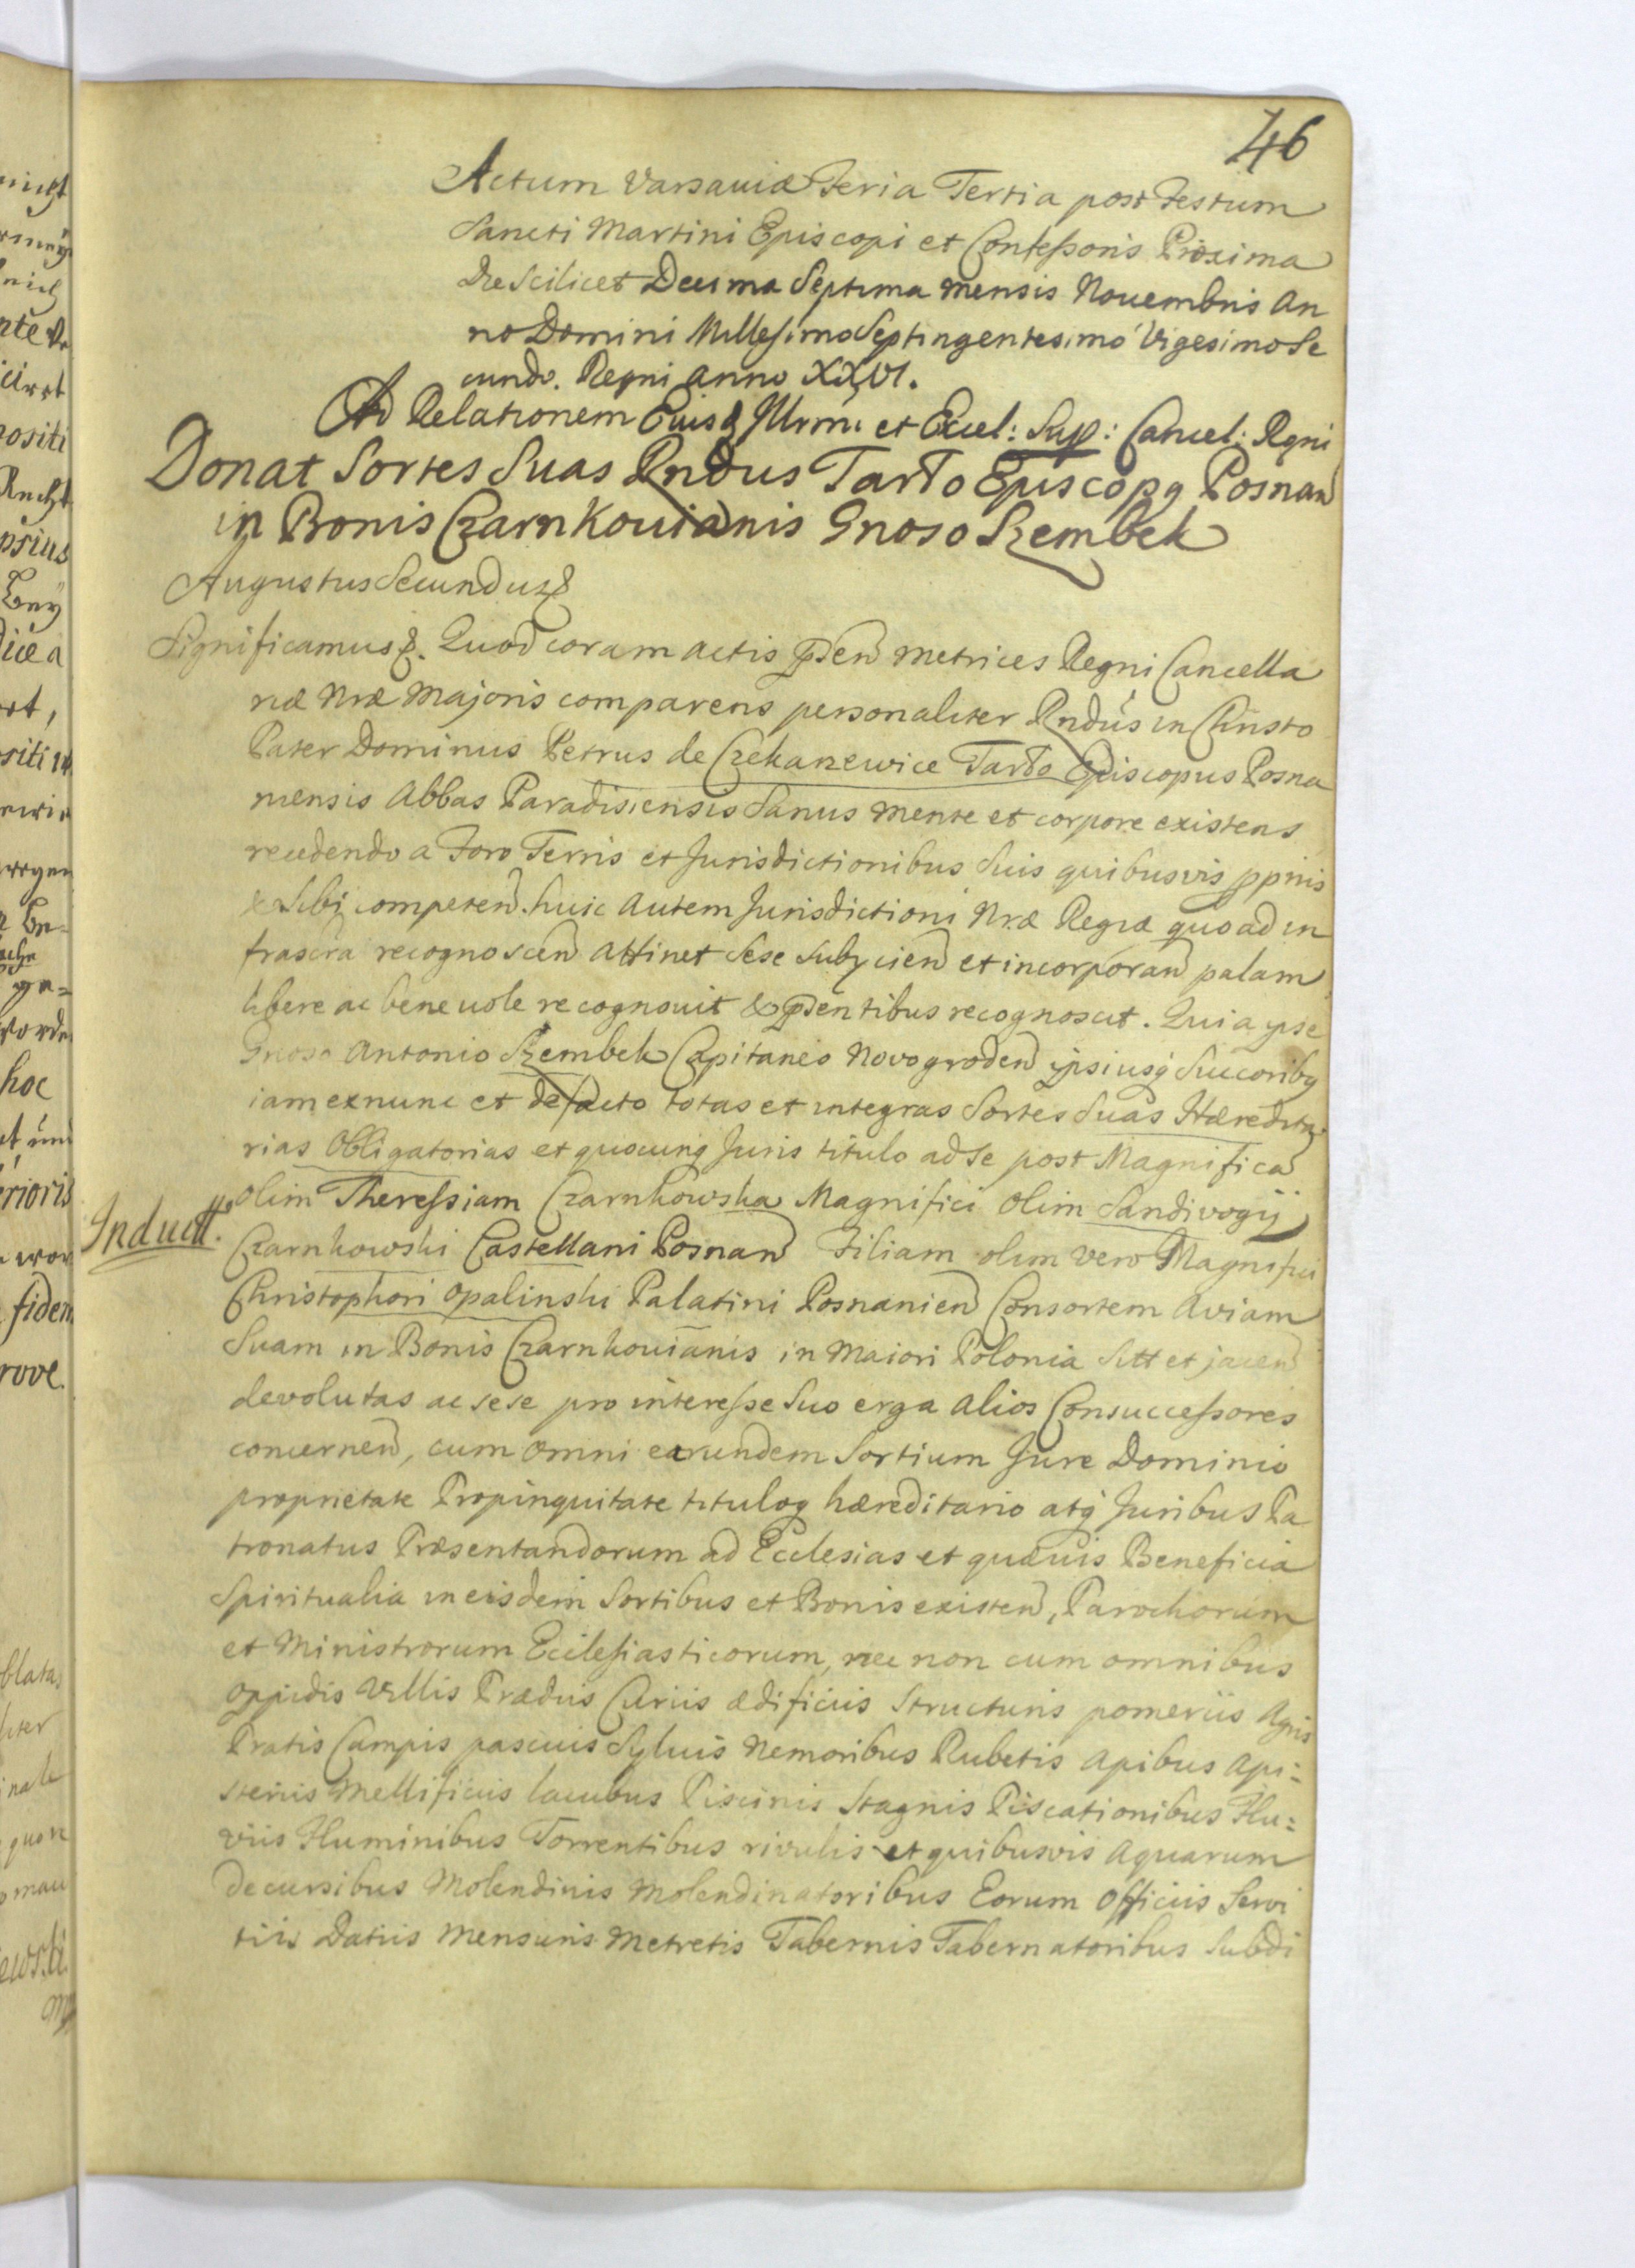 46
Actum Varsaviæ Feria Tertia post Festum
Sancti Martini Episcopi et Confessoris Proxima
Die Scilicet Decima Septima mensis Novembris An
no Domini Millesimo Septingentesimo Vigesimo Se
cundo. Regni Anno XXVI.
Ad Relationem Eiusd Illrmi et Excel: Sup: Cancel: Regni
Donat Sortes Suas Rndus Tarło Episcopq Posnan
in Bonis Czarnkovianis Gnoso Szembek
Augustus Secundus
Significamus &. Quod coram actis pden metrices Regni Cancella
riæ Nræ Majoris comparens personaliter Rndus in Christo
Pater Dominus Petrus de Czekarzewice Tarło Episcopus Posna
niensis Abbas Paradisiensis Sanus mente et corpore existens
recedendo a Foro Terris et Jurisdictionibus Suis quibusvis ppriis
& Sibi competen. huic autem Jurisdictioni Nræ Regiæ quoad in
frascra recognoscen attinet sese Subycien et incorporan palam
libere ac benevole recognovit & pdentibus recognoscit. Quia ipse
Gnoso Antonio Szembek Capitaneo Novogroden ipsiusq Succoribq
iam exnunc et de facto totas et integras Sortes Suas Hæredita
rias Obligatorias et quocunq Juris titulo ad se post Magnifica
olim Theressiam Czarnkowska Magnifici olim Sandivogij
Induct.
Czarnkowski Castellani Posnan Filiam olim vero Magnifici
Christophori Opalinski Palatini Posnanien Consortem Aviam
Suam in Bonis Czarnkovianis in Maiori Polonia Sitt et jacen
devolutas ac sese pro interesse Suo erga alios Consuccessores
concernen, cum omni earundem Sortium Jure Dominio
proprietate Propinquitate tituloq hæreditario atq Juribus Pa
tronatus Præsentandorum ad Ecclesias et quævis Beneficia
Spiritualia in eisdem Sortibus et Bonis existen, Parochorum
et Ministrorum Ecclesiasticorum, nec non cum omnibus
Oppidis Villis Prædiis Curiis ædificiis Structuris pomeriis Agris
Pratis Campis pascuis Sylvis Nemoribus Rubetis Apibus Api-
steriis Mellificiis lacubus Piscinis Stagnis Piscationibus Flu=
viis Fluminibus Torrentibus rivulis et quibusvis Aquarum
Decursibus Molendinis Molendinatoribus Eorum Officiis Servi
tiis Datiis Mensuris Metretis Tabernis Tabernatoribus Subdi